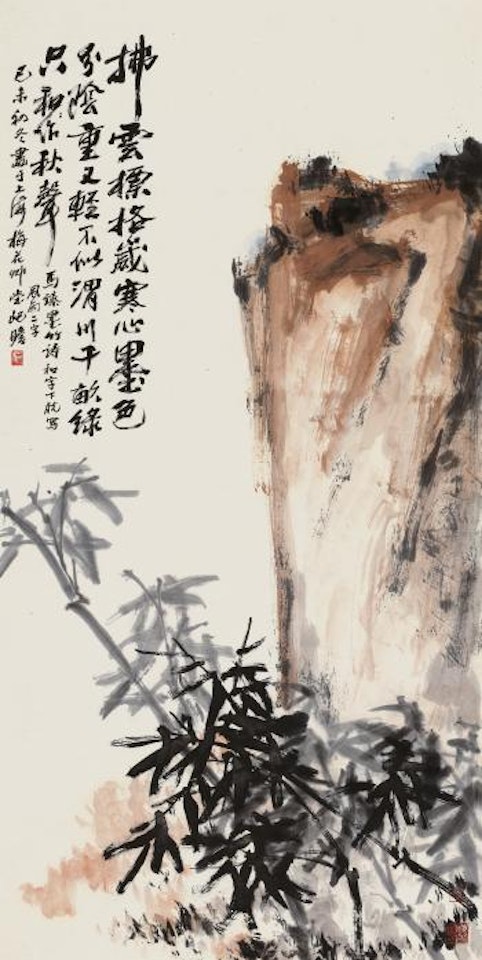 拂雲標格歲寒心墨色
分陰重又輕不似渭川千畝綠
只和作秋聲
馬臻墨竹詩和字下脫寫
風雨二字
己未初冬畫于上海梅花艸堂屺瞻